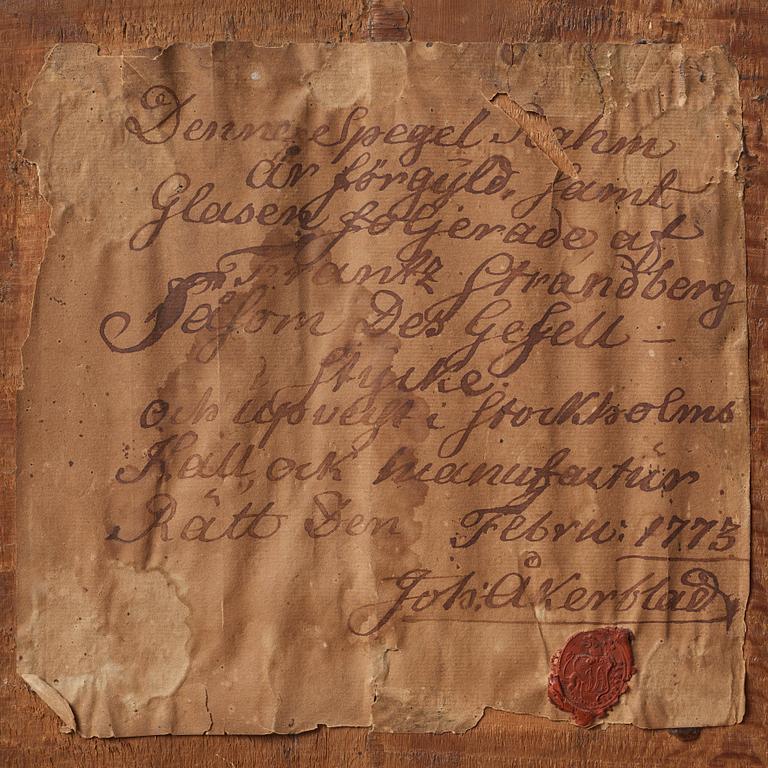 Denne Spegel Rahm
är förgyld, samt
Glasen foljerade af
Frantz Strandberg
Såsom Des Gesell-
stycke.
och upvist i Stockholms
Hall, ock manufactur
Rätt Den Febru: 1773
Joh: Åkerblad